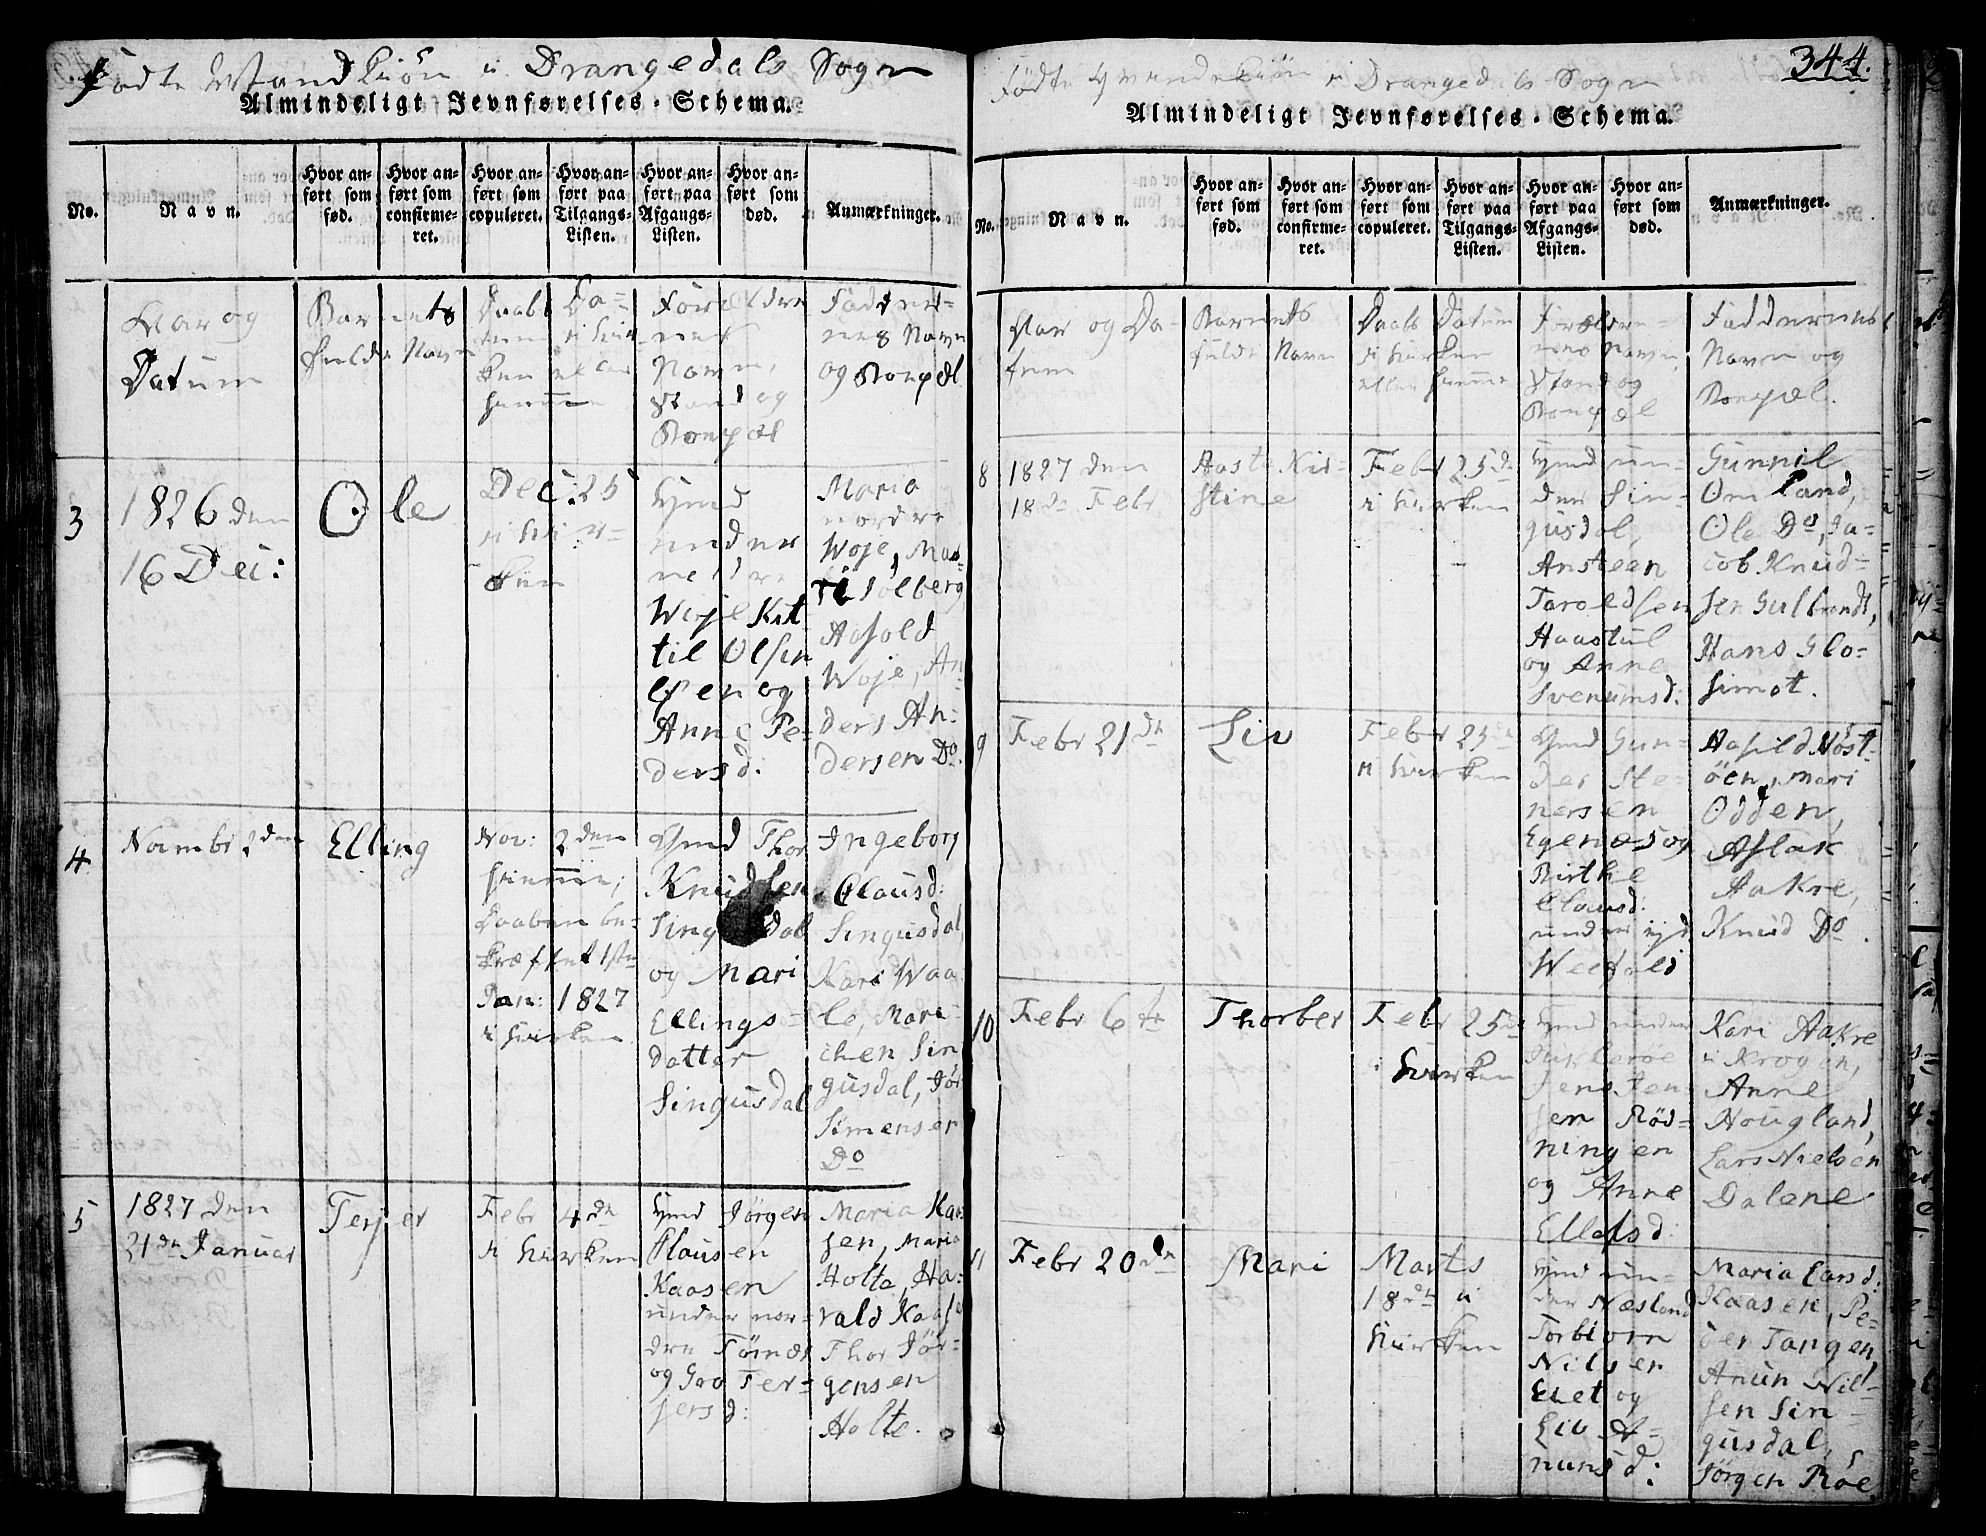 Fødte Mandkiön i Drangedals Sogn
Almindeligt Jevnførelses-Schema.
No.
Navn.
Hvor anført som fød.
Hvor anført som confirmeret.
Hvor anført som copuleret.
Hvor anført paa Tilgangs-Listen.
Hvor anført paa Afgangs-Listen.
Hvor anført som død.
Anmærkninger.
Aar og
Datum
Barnets
fulde Navn
Daabs Da=
Foreldre
Navn,
Stand og
Bopæl
Faddere=
nes Navn
og Bopæl
3
1826 den
16 Dec:
Ole
Dec: 25
i Kir=
ken
Gmd
under
nedre
Woje Kit
til Olsen
og
Anne Pe=
dersd:
Maria
nordre
Woje, Ma=
ri Solberg
Aasold
Woje, An
ders An=
dersen Do.
4
Novembr 2den
Elling
Nov: 2den
hiemme,
Daaben be=
kræftet 1ste
Jan: 1827
i Kirken
Gmd Thor
Knudsen
Singusdal
og Mari
Ellings=
datter
Singusdal
Ingeborg
Clausd:
Singusdal,
Kari Waa
le, Mari
chen Sin
gusdal, Jör
Simensen
Do
5
1827 den
21de Januar
Terjer
Febr 4de
i Kirken
Gmd Jörgen
Clausen
Kaasen
under nor=
dre Törnes
og Gro Ter=
jersd:
Maria Kaa
sen, Maria
Holte, Ha=
vald Kaas
Thor Jör=
gensen
Holte.
344.
Fødte Qvindekiön i Drangedals Sogn
Almindeligt Jevnførelses-Schema.
No.
Navn.
Hvor anført som fød.
Hvor anført som confirmeret.
Hvor anført som copuleret.
Hvor anført paa Tilgangs-Listen.
Hvor anført paa Afgangs-Listen.
Hvor anført som død.
Anmærkninger.
Aar og Da=
tum
Barnets
fulde Navn
Daabs Datum
i Kirken
eller hiemme
Foreldre=
nes Navn
Stand og
Bopæl
Faddernes
Navn og
Bopæl.
8
1827 den
18de Febr
Aaste Kir=
stine
Febr 25de
i Kirken
Gmd un=
der Sin=
gusdal,
Ansteen
Taroldsen
Haastul
og Anne
Svenumsd:
Gunnil
Omland,
Ole Do, Ja=
cob Knud=
sen Gulbrands,
Hans Glo=
simot.
9
Febr 21de
Liv
Febr 25de
i Kirken
Gmd Gun=
der Ste=
nersen
Egenes og
Birthe
Clausd:
under
Aasild Nöst
öen, Mari
Odden,
Aslak
Aakre,
Knud Do.
10
Febr 6te
Thorber
Febr 25de
i Kirken
Gmd under
Jens Jen=
sen Röd=
ningen
og Anne
Ellefsd:
Kari Aakre
i Krogen,
Anne
Hougland,
Lars Nielsen
Dalene
11
Febr 20de
Mari
Marts
18de i
Kirken
Gmd un=
der Næsland
Torbiorn
Nilsen
Eiet og
Liv A=
nunsd:
Maria Larsd:
Kaasen, Pe=
der Tangen
Anun Nil=
sen Sin=
gusdal,
Jörgen Röe.